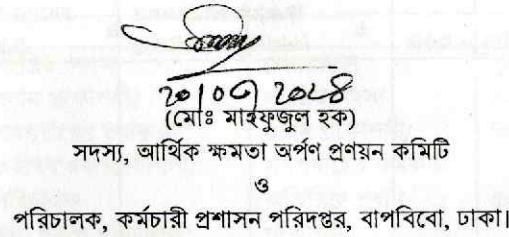 ২০/০৩/২০২৪
(মোঃ মাহফুজুল হক)
সদস্য, আর্থিক ক্ষমতা অর্পণ প্রণয়ন কমিটি
ও
পরিচালক, কর্মচারী প্রশাসন পরিদপ্তর, বাপবিবো, ঢাকা।